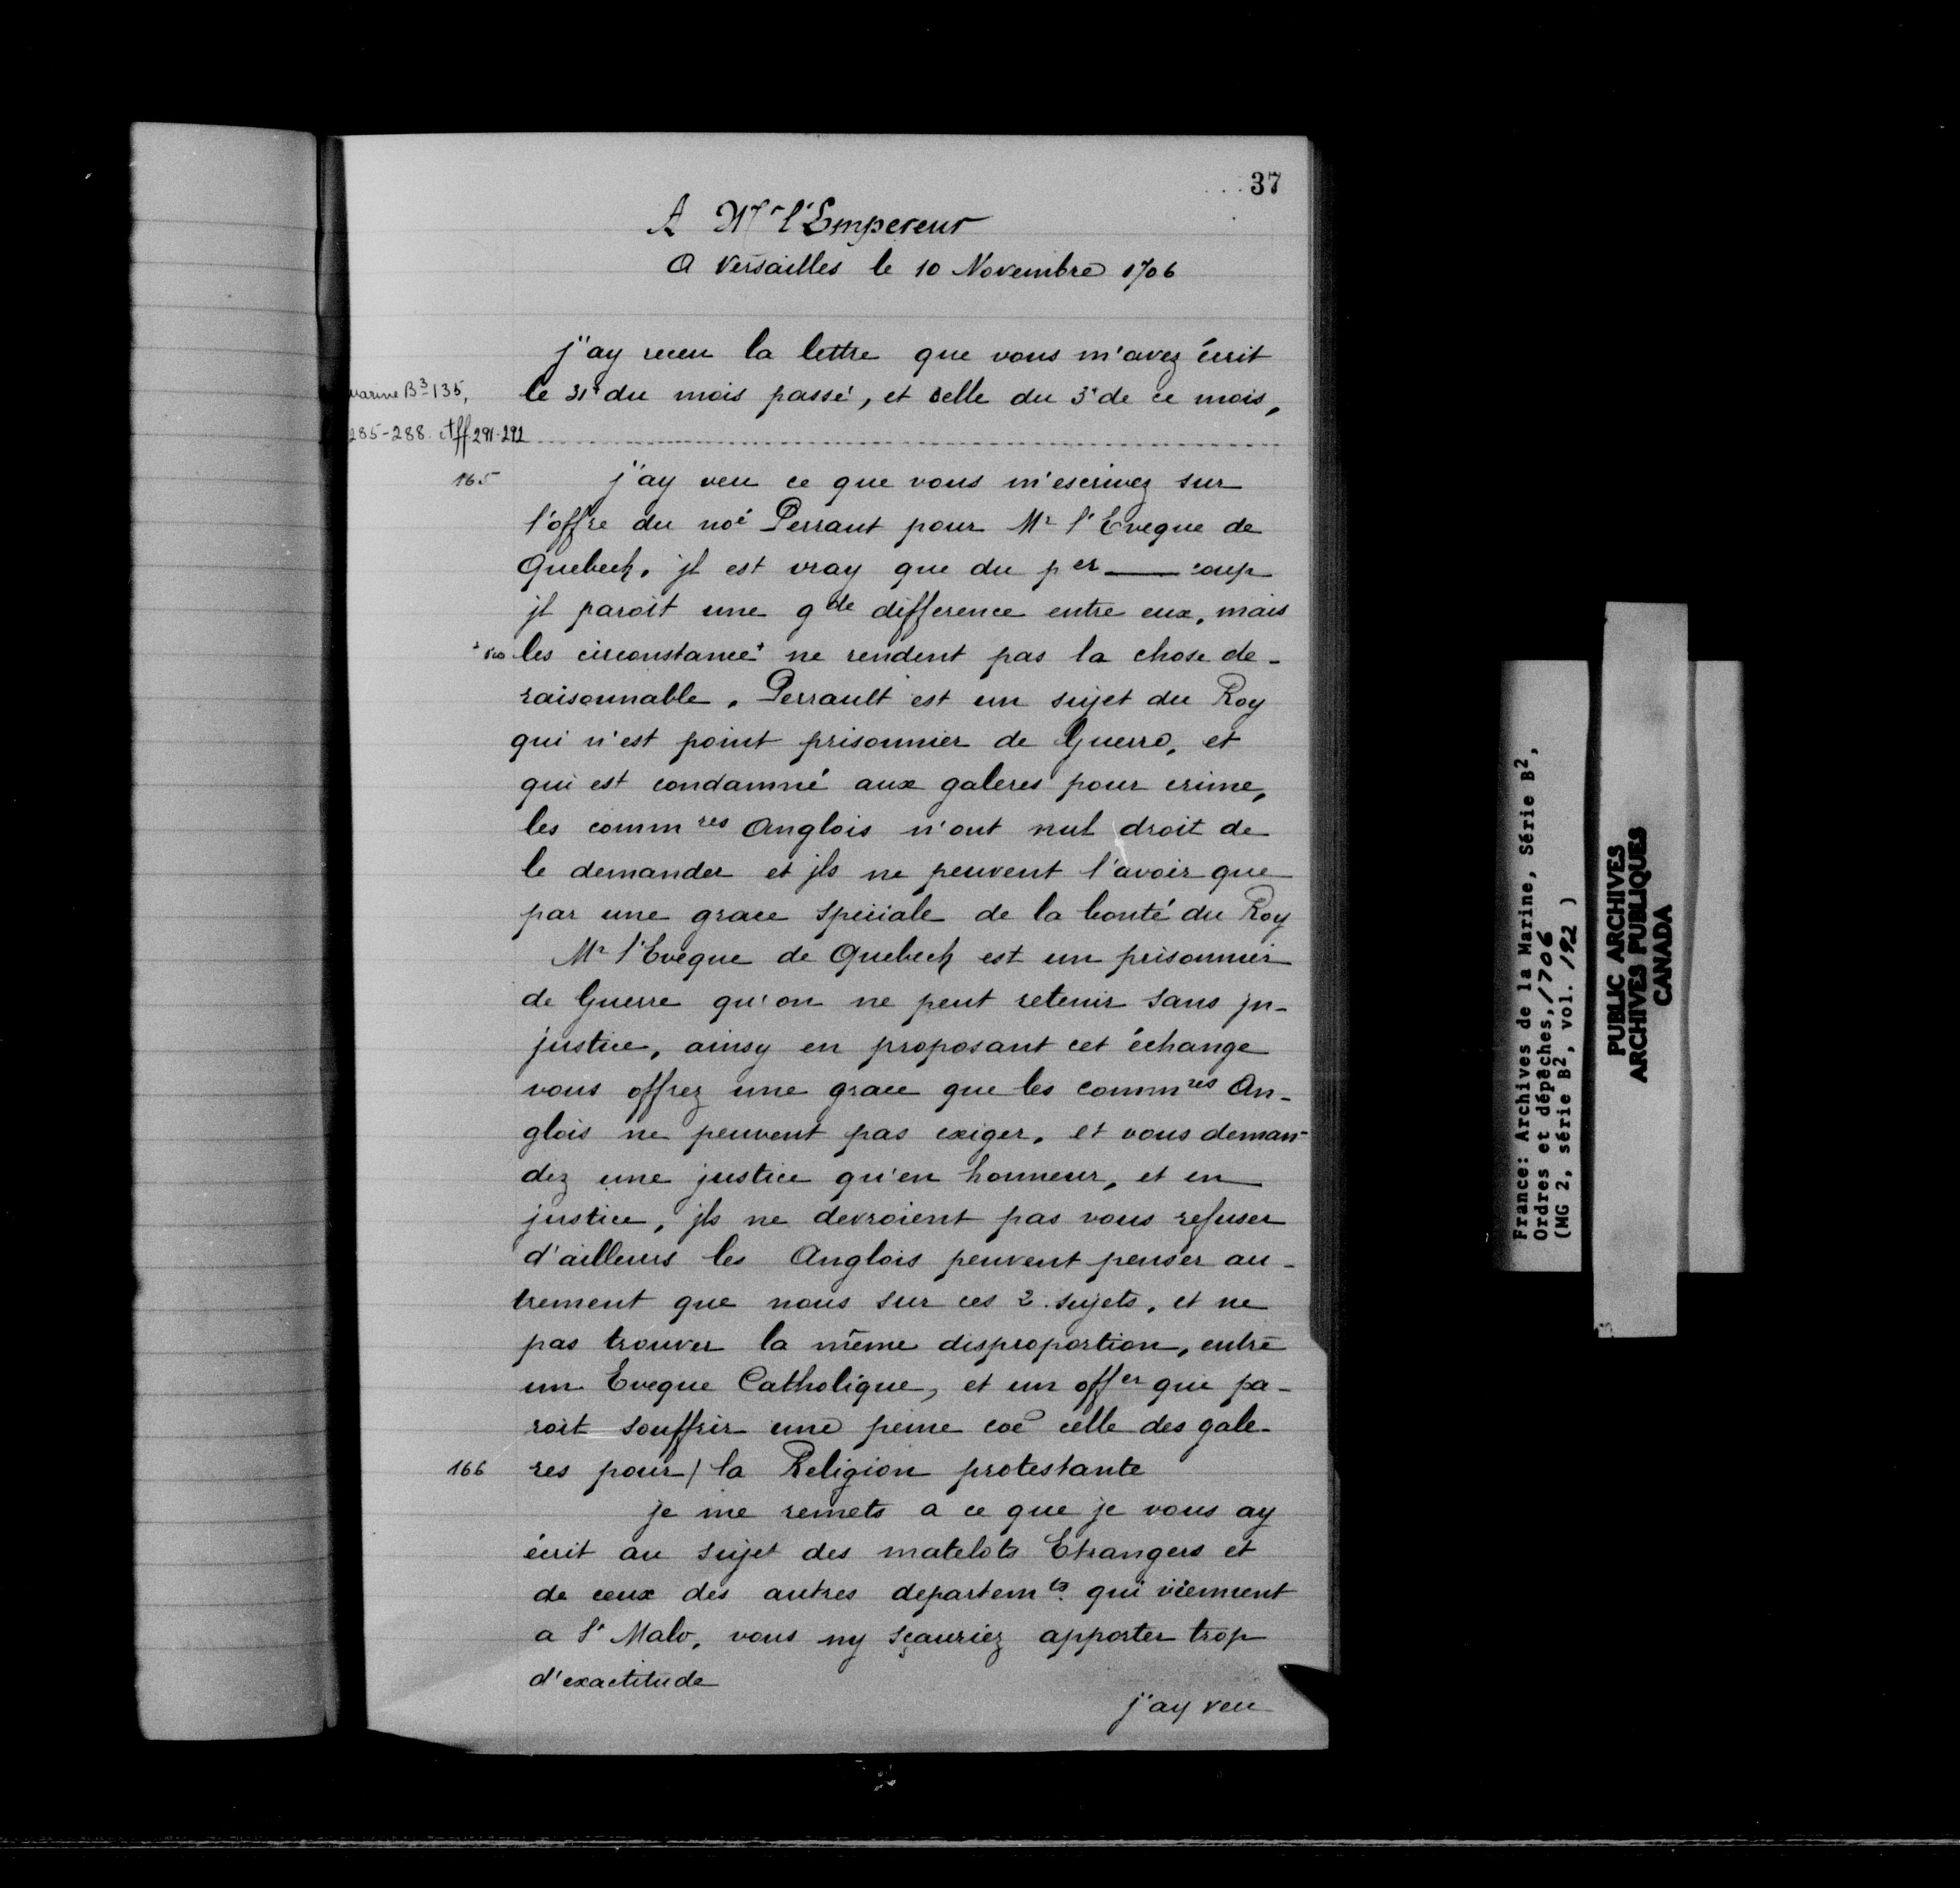 37
A Mr l'Empereur
A Versailles le 10 Novembre 1706
j'ay receu la lettre que vous m'avez écrit
le 31e du mois passé, et celle du 3e de ce mois,
Marine B3 135,
285-288. et ff. 291-292
165
j'ay veu ce que vous m'escrivez sur
l'offre du noé Perraut pour Mr l'Eveque de
Quebeck, jl est vray que du per coup
jl paroit une gde difference entre eux, mais
les circonstance+ ne rendent pas la chose de-
raisonnable. Perrault est un sujet du Roy
qui n'est point prisonnier de Guerre, et
qui est condamné aux galeres pour crime,
les commres Anglois n'ont nul droit de
le demander et jls ne peuvent l'avoir que
par une grace speciale de la bonté du Roy
Mr l'Eveque de Quebeck est un prisonnier
de Guerre qu'on ne peut retenir sans jn-
justice, ainsy en proposant cet échange
vous offrez une grace que les commres An-
glois ne peuvent pas exiger, et vous deman-
dez une justice qu'en honneur, et en
justice, jls ne devroient pas vous refuser
d'ailleurs les Anglois peuvent penser au-
trement que nous sur ces 2 sujets, et ne
pas trouver la même disproportion, entre
un Eveque Catholique, et un offer qui pa-
roit souffrir une peine coe celle des gale-
166
res pour / la Religion protestante
je me remets a ce que je vous ay
écrit au sujet des matelots Etrangers et
de ceux des autres departemts. qui viennent
a St Malo, vous ny sçauriez apporter trop
d'exactitude
j'ay veu
France: Archives de la Marine, Série B2,
Ordres et dépêches, 1706
(MG 2, série B2, vol. 192 )
PUBLIC ARCHIVES
ARCHIVES PUBLIQUES
CANADA